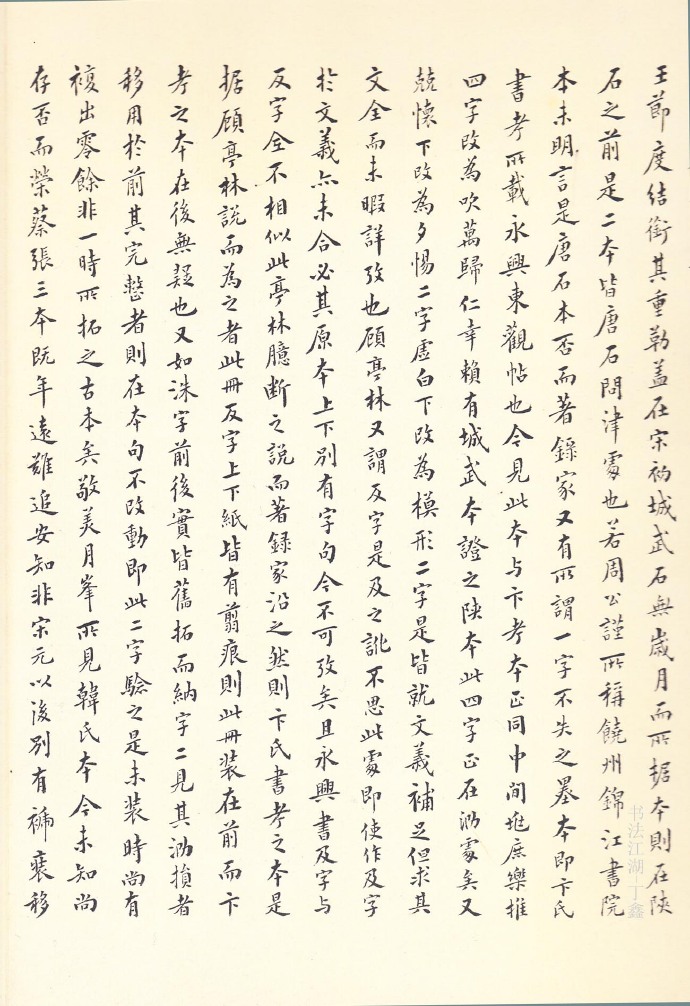 王節度結銜其重勒蓋在宋初城武石無歲月而所据本則在陝
石之前是二本皆唐石問津處也若周公謹所稱饒州錦江書院
本未明言是唐石本否而著錄家又有所謂一字不失之墨本即卞氏
書考所載永興東觀帖也今見此本与卞考本正同中間挻庶樂推
四字改為吹萬歸仁幸賴有城武本證之陝本此四字正在泐處矣又
兢懷下改為夕惕二字虛白下改為模形二字是皆就文義補足但求其
文全而未暇詳攷也顧亭林又謂反字是及之訛不思此處即使作及字
於文義亦未合必其原本上下別有字句今不可攷矣且永興書及字与
反字全不相似此亭林臆斷之說而著錄家沿之然則卞氏書考之本是
据顧亭林說而為之者此冊反字上下紙皆有翦痕則此冊裝在前而卞
考之本在後無疑也又如洙字前後實皆舊拓而納字二見其泐損者
移用於前其完整者則在本句不改動即此二字驗之是未裝時尚有
複出零餘非一時所拓之古本矣敬美月峯所見韓氏本今未知尚
存否而榮蔡張三本既年遠難追安知非宋元以後別有裱褙移
书法江湖 丁鑫